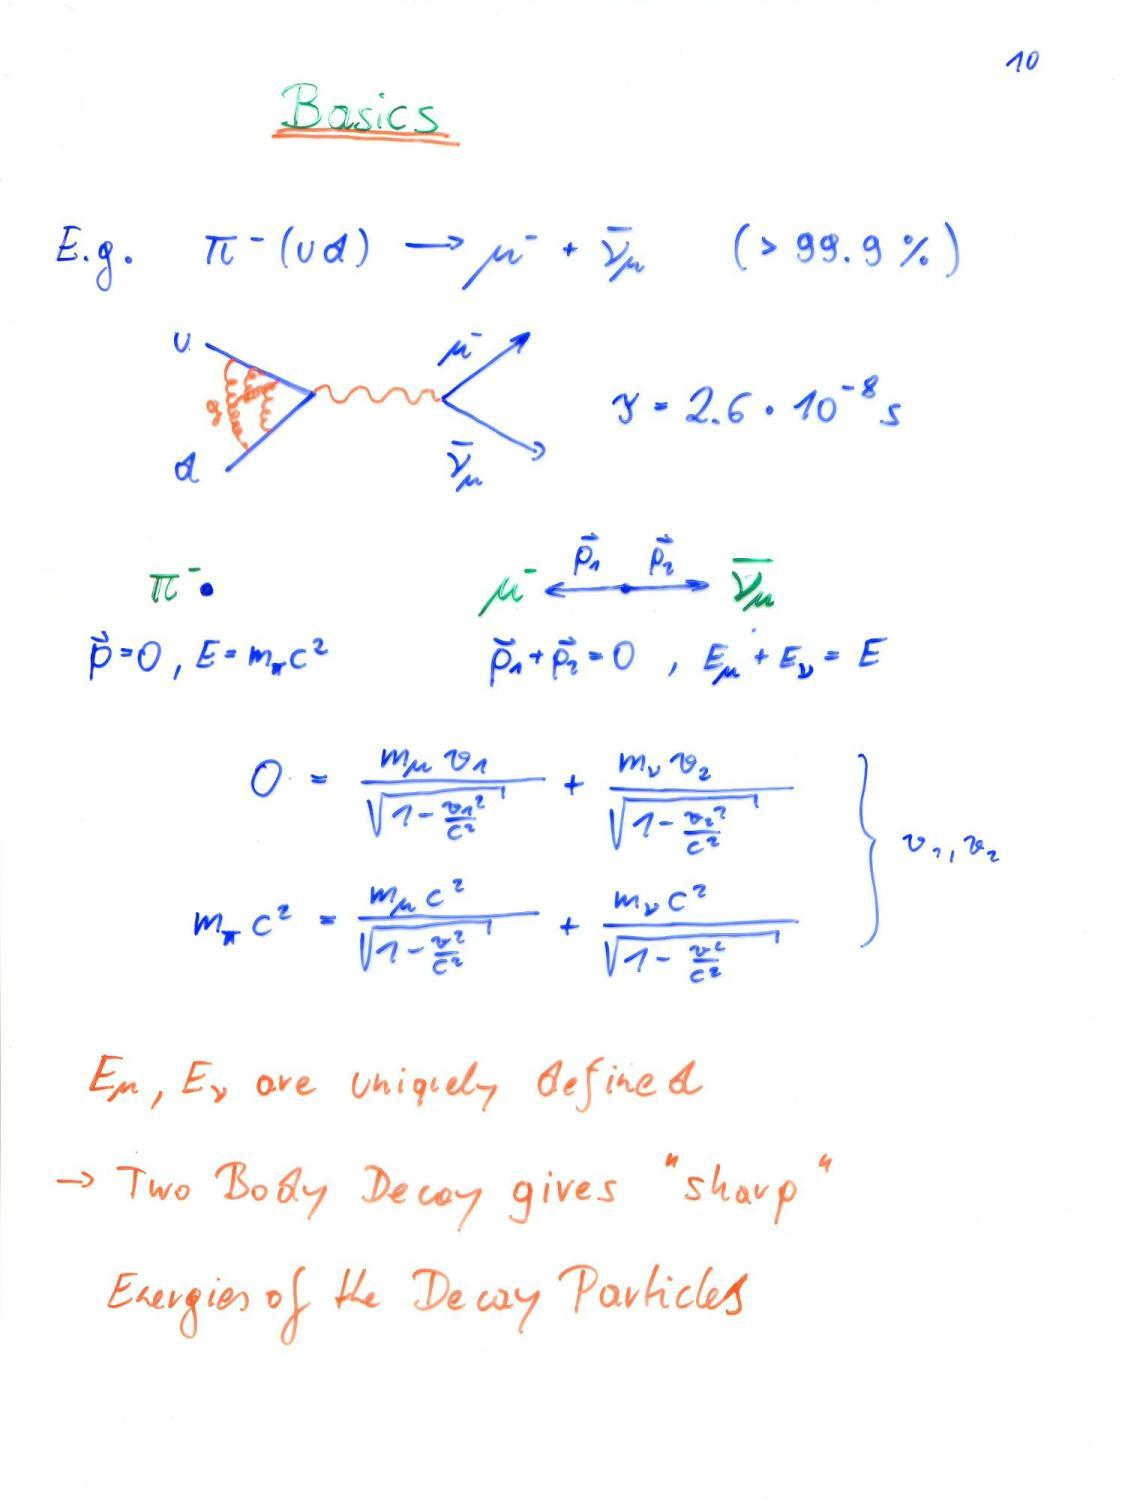 10
Basics
E.g. π⁻(ud) → μ⁻ + ν̄_μ (> 99.9 %)
u μ⁻
g τ = 2.6 · 10⁻⁸ s
d ν̄_μ
p⃗₁ p⃗₂
π⁻ μ⁻ ν̄_μ
p⃗=0, E=m_π c² p⃗₁+p⃗₂=0, E_μ + E_ν = E
0 = m_μ v₁ / √(1-v₁²/c²) + m_ν v₂ / √(1-v₂²/c²)
v₁, v₂
m_π c² = m_μ c² / √(1-v²/c²) + m_ν c² / √(1-v²/c²)
E_μ, E_ν are uniquely defined
→ Two Body Decay gives "sharp"
Energies of the Decay Particles